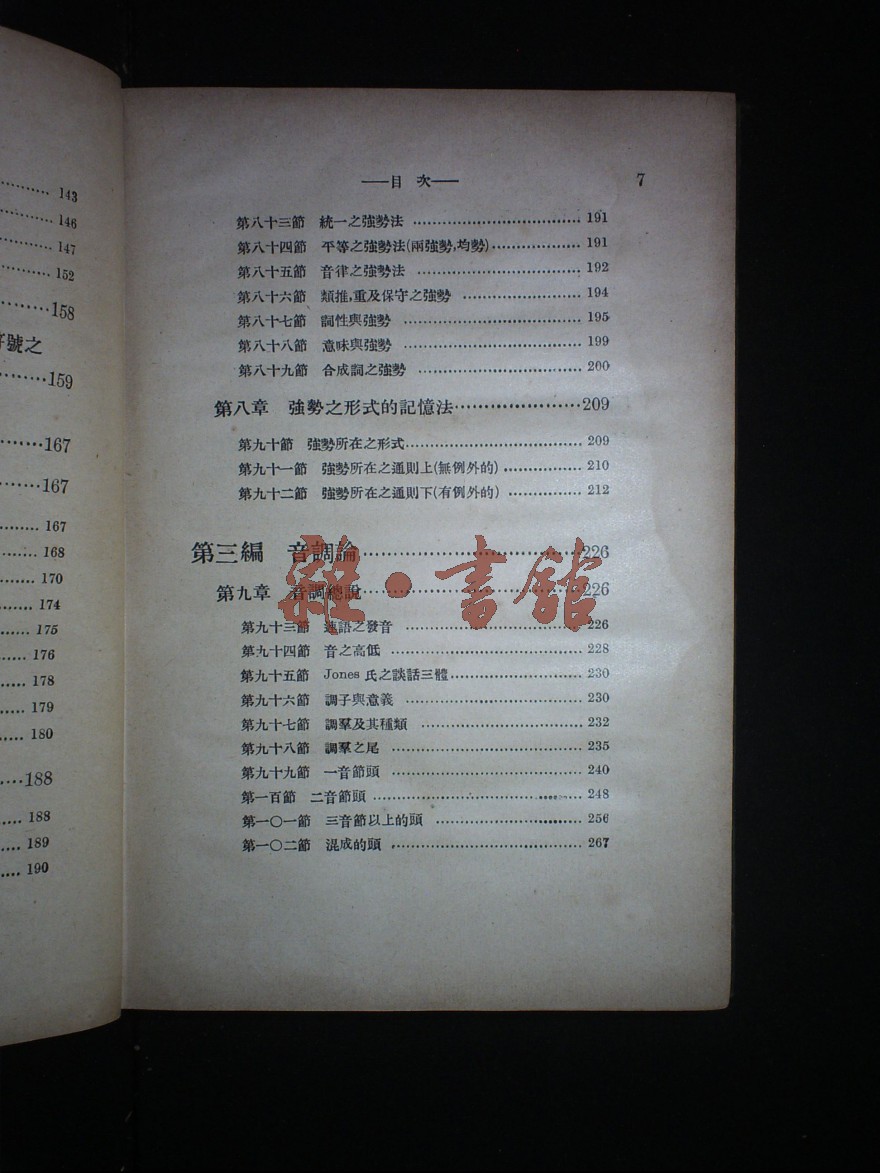 143
146
147
152
158
號之
159
167
167
167
168
170
174
175
176
178
179
180
188
188
189
190
——目 次—— 7
第八十三節 統一之強勢法 191
第八十四節 平等之強勢法(兩強勢,均勢) 191
第八十五節 音律之強勢法 192
第八十六節 類推,重及保守之強勢 194
第八十七節 詞性與強勢 195
第八十八節 意味與強勢 199
第八十九節 合成詞之強勢 200
第八章 強勢之形式的記憶法 209
第九十節 強勢所在之形式 209
第九十一節 強勢所在之通則上(無例外的) 210
第九十二節 強勢所在之通則下(有例外的) 212
第三編 音調論 226
第九章 音調總說 226
雜·書館
第九十三節 連語之發音 226
第九十四節 音之高低 228
第九十五節 Jones 氏之談話三體 230
第九十六節 調子與意義 230
第九十七節 調羣及其種類 232
第九十八節 調羣之尾 235
第九十九節 一音節頭 240
第一百節 二音節頭 248
第一〇一節 三音節以上的頭 256
第一〇二節 混成的頭 267